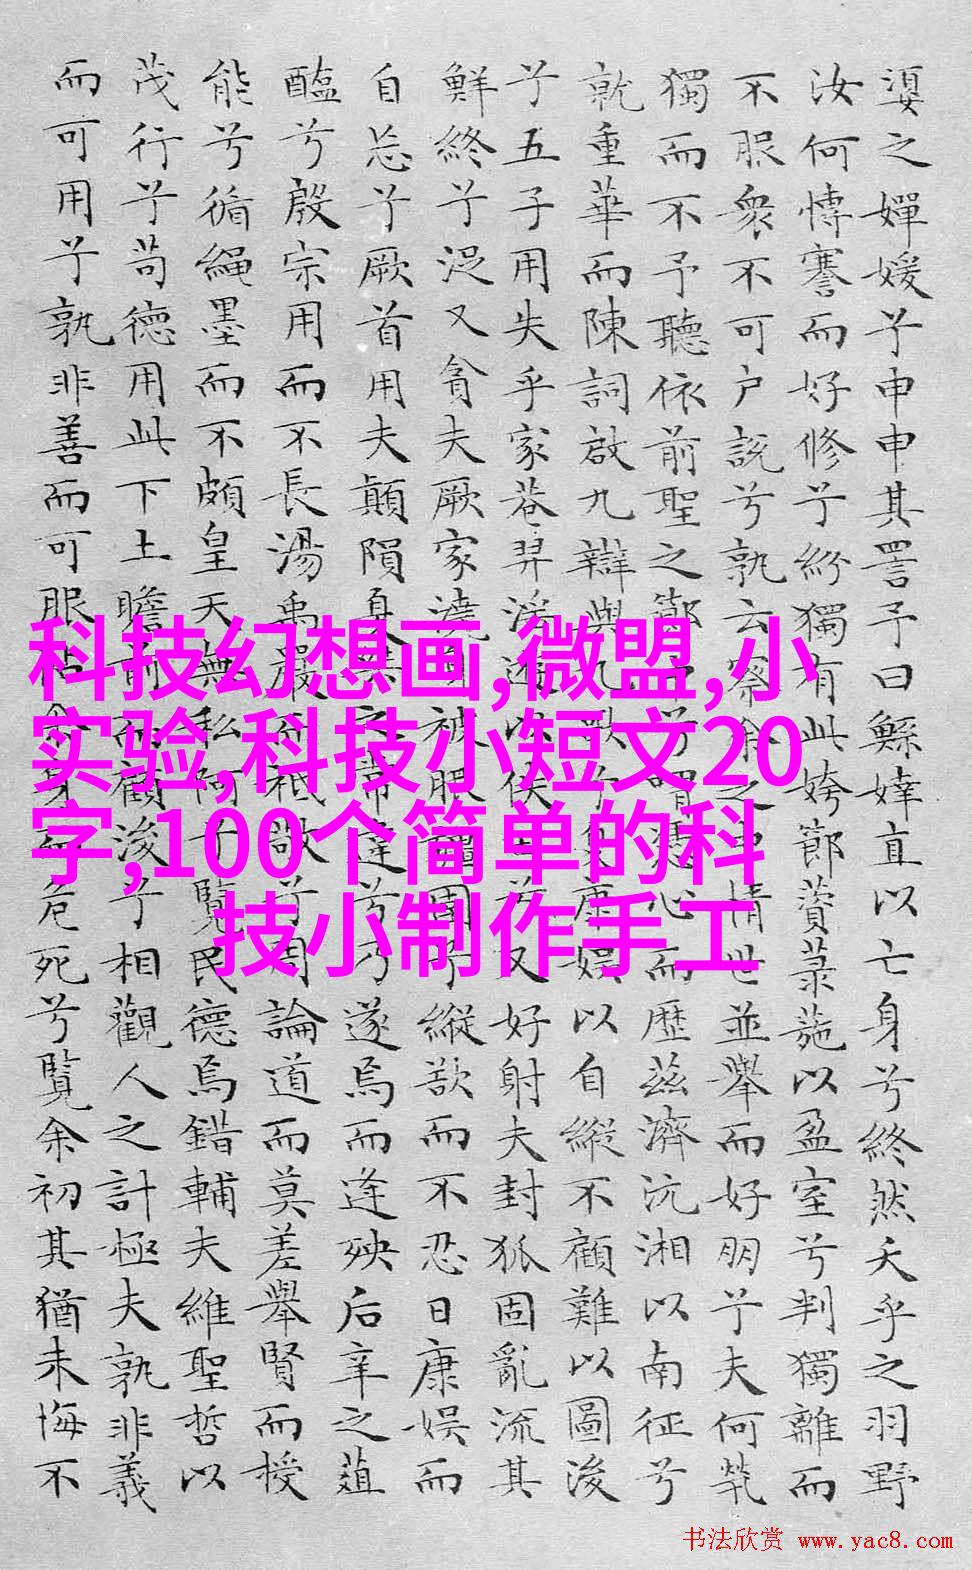 媭之嬋媛兮申申其詈予曰鯀婞直以亡身兮終然夭乎之羽野
汝何博謇而好修兮紛獨有此姱節薋菉葹以盈室兮判獨離而
不服衆不可户說兮孰云察余之中情世並舉而好朋兮夫何煢
獨而不予聽依前聖之節中兮喟憑心而歷茲濟沅湘以南征兮
就重華而陳詞啟九辯與九歌兮夏康娛以自縱不顧難以圖後
兮五子用失乎家巷羿淫遊以佚田兮又好射夫封狐固亂流其
鮮終兮浞又貪夫厥家澆身被服強圉兮縱欲而不忍日康娛而
自忘兮厥首用夫顛隕夏桀之常違兮乃遂焉而逢殃后辛之菹
醢兮殷宗用而不長湯禹嚴而祗敬兮周論道而莫差舉賢而授
能兮循繩墨而不頗皇天無私阿兮覽民德焉錯輔夫維聖哲以
茂行兮苟德用此下土瞻前而顧後兮相觀人之計極夫孰非義
而可用兮孰非善而可服阽余身而危死兮覽余初其猶未悔不
科技幻想画,微盟,小
实验,科技小短文20
字,100个简单的科
技小制作手工
书法欣赏 www.yac8.com